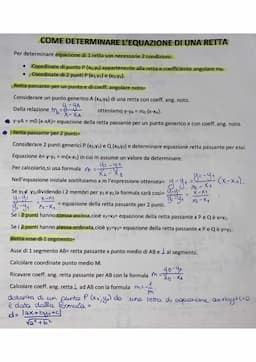 COME DETERMINARE L'EQUAZIONE DI UNA RETTA
Per determinare equazione di 1 retta son necessarie 2 condizioni:
• Coordinate di punto P (x₁;y₁) appartenente alla retta e coefficiente angolare m.
• Coordinate di 2 punti P (x₁;y₁) e (x₂;y₂).
Retta passante per un punto e di coeff. angolare noto=
Considerare un punto generico A (xₐ;yₐ) di una retta con coeff. ang. noto.
Dalla relazione m = y-yₐ / x-xₐ otteniamo y-yₐ = m(x-xₐ).
equazione della retta passante per un punto generico e con coeff. angol. noto.
Retta passante per 2 punti=
Considerare 2 punti generici P (x₁;y₁) e Q (x₂;y₂) e determinare equazione retta passante per essi.
Equazione è= y-y₁ = m(x-x₁) in cui m assume un valore da determinare.
Per calcolarlo, si usa formula m = y₂-y₁ / x₂-x₁
Nell'equazione iniziale sostituiamo a m l'espressione ottenuta= y-y₁ = y₂-y₁ / x₂-x₁ (x-x₁).
dividendo i 2 membri per
la formula sarà così=
y-y₁ / y₂-y₁ = x-x₁ / x₂-x₁ = equazione della retta passante per 2 punti.
Se i 2 punti hanno stessa ascissa, cioè x₁=x₂= equazione della retta passante x P e Q è x=x₁.
Se i 2 punti hanno stessa ordinata, cioè y₁=y₂= equazione della retta passante x P e Q è y=y₁.
Retta asse di 1 segmento=
Asse di 1 segmento AB= retta passante x punto medio di AB e ⊥ al segmento.
Calcolare coordinate punto medio M.
Ricavare coeff. ang. retta passante per AB con la formula
Calcolare coeff. ang. retta ⊥ ad AB con la formula
distanza di un punto P (x₀, y₀) da una retta di equazione ax+by+c=0
è data dalla formula=
d= |ax+by+c| / √a²+b²